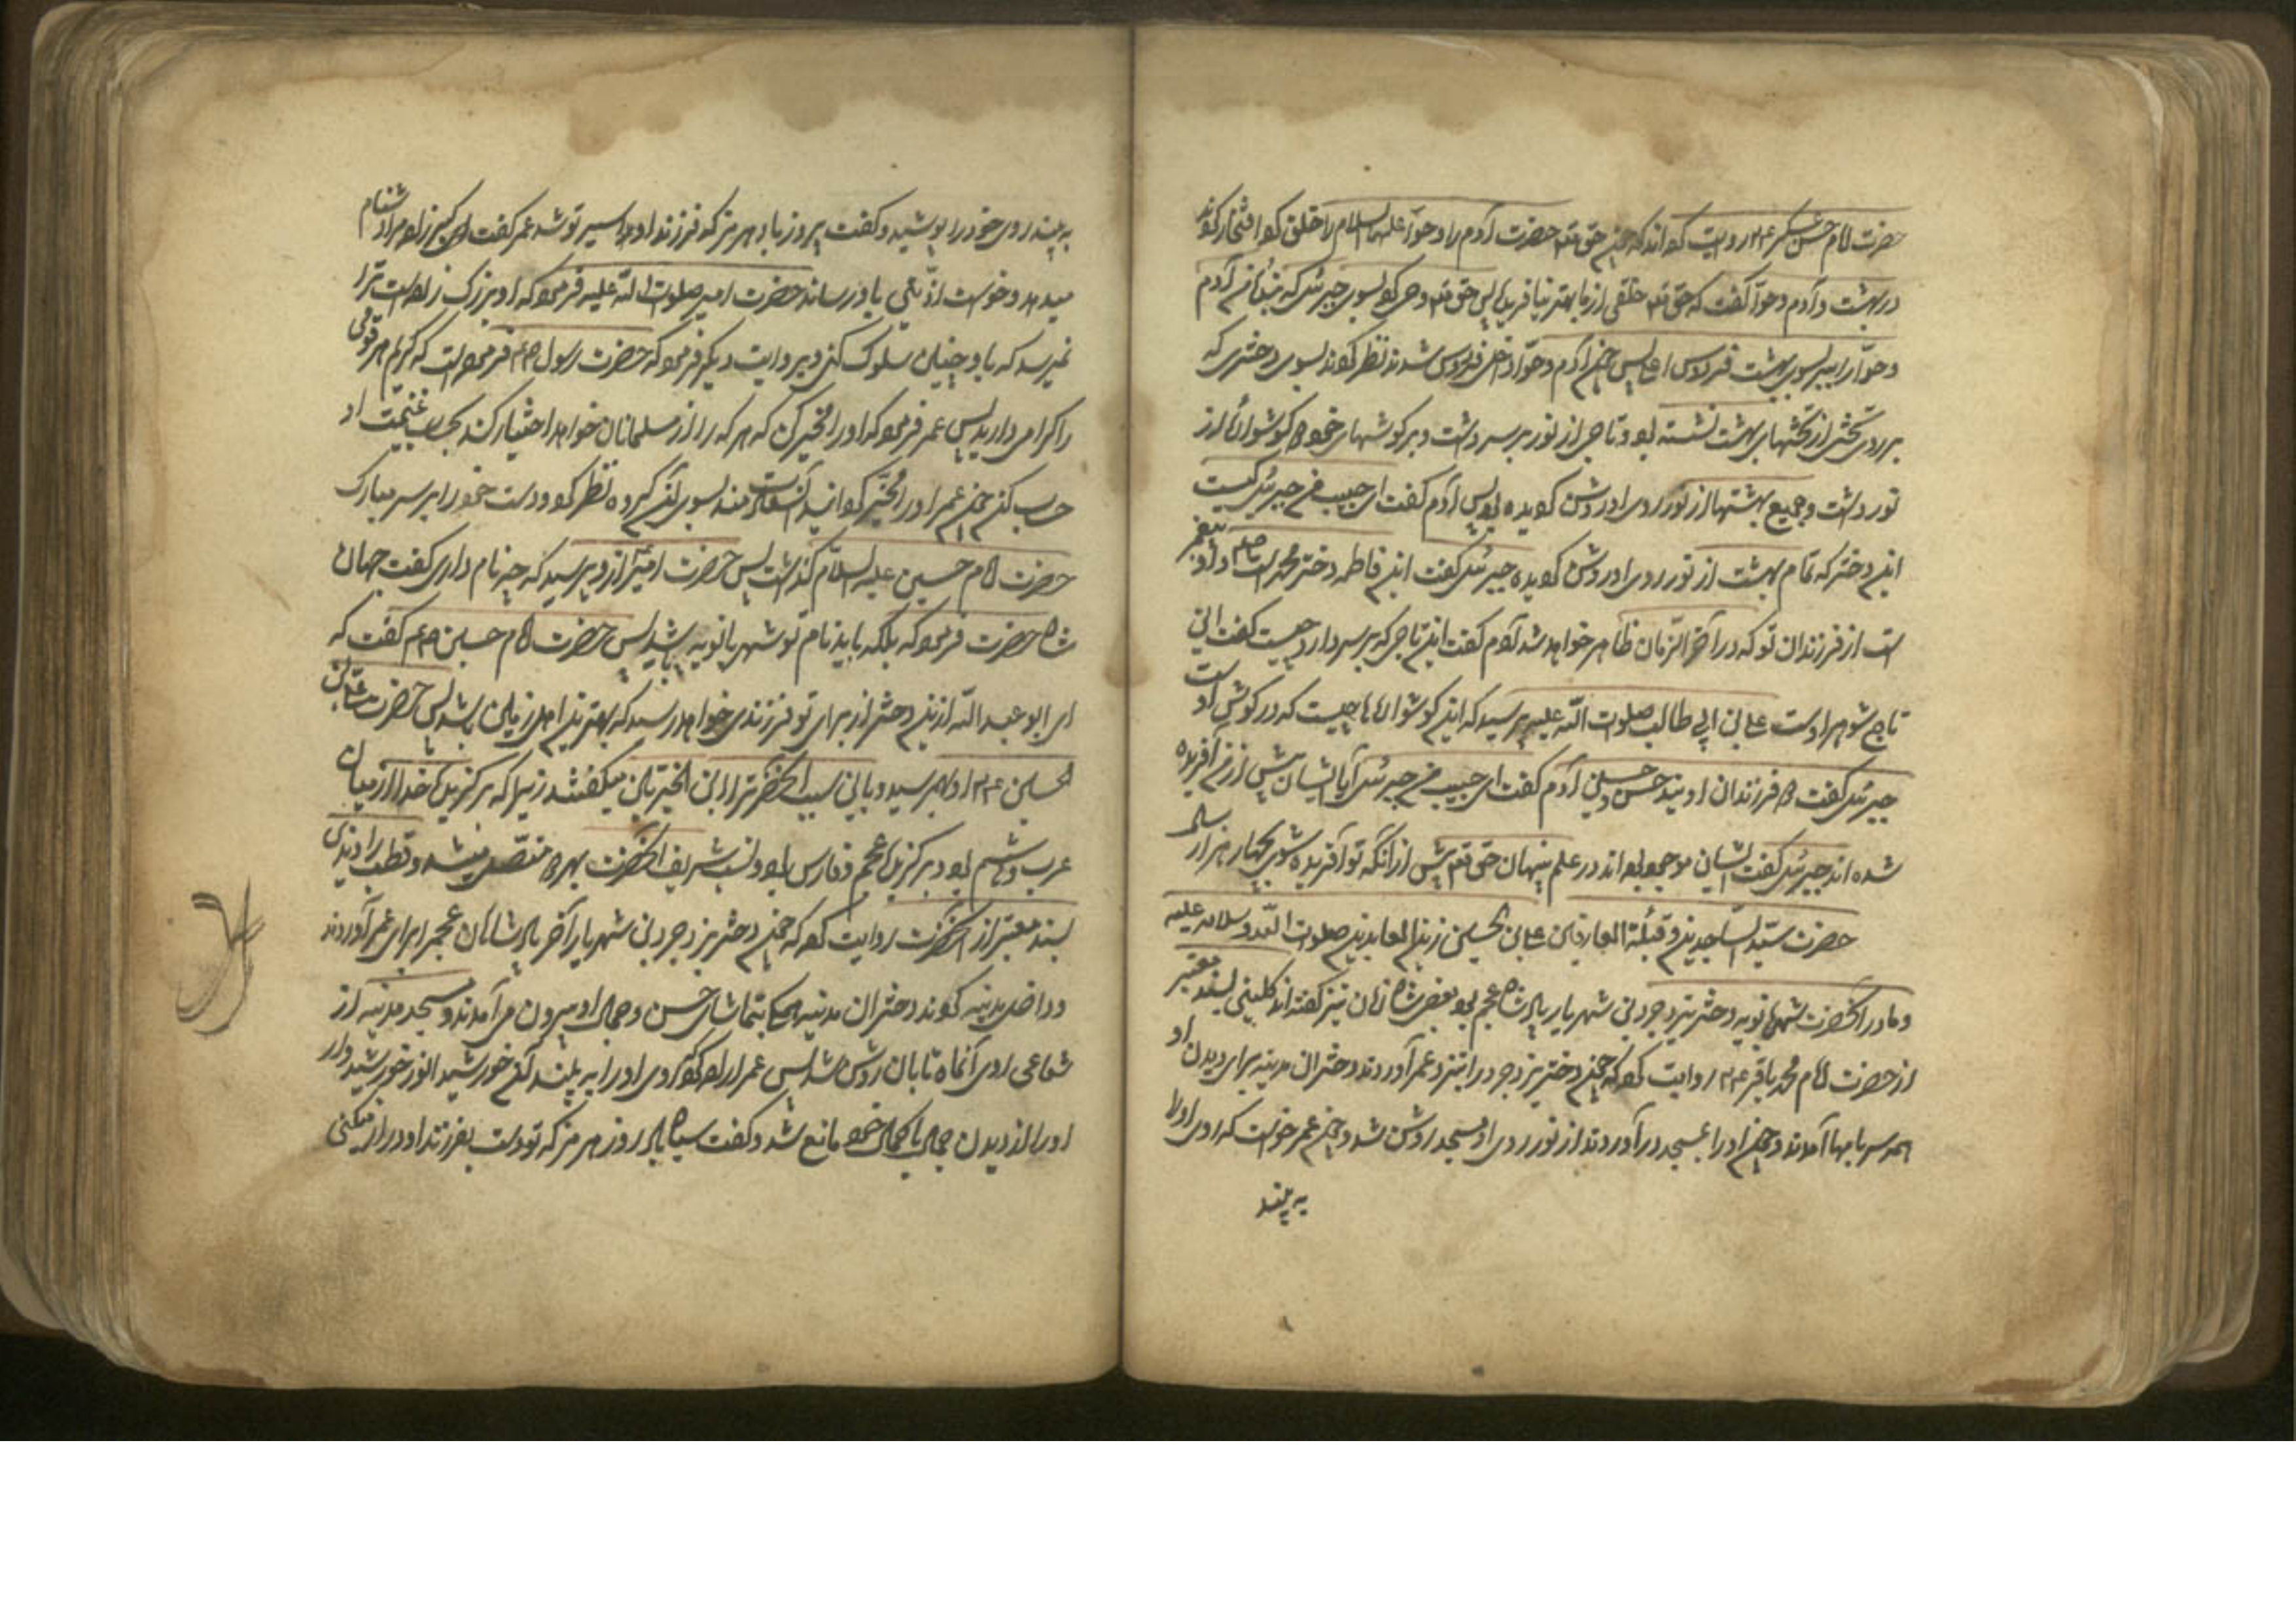 حضرت امام حسن عسکری ع م روایت کرده اند که چون حق تعه حضرت آدم را و حوا علیهما السلام را خلق کرد افتخار کردند
در بهشت و آدم و حوا گفت که حق تعه خلقی از ما بهتر نیافریده پس حق تعه وحی کرد بسوی جبرئیل که بنده من آدم
و حوا را ببر بسوی بهشت فردوس اعلی پس چون آدم و حوا داخل فردوس شدند نظر کردند بسوی دختری که
بر روی تختی از تختهای بهشت نشسته بود و تاجی از نور بر سر داشت و بر گوشهای خود دو گوشواره از
نور داشت و جمیع بهشتها از نور روی او روشن گردیده بود پس آدم گفت ای حبیب من جبرئیل کیست
این دختر که تمام بهشت از نور روی او روشن گردیده جبرئیل گفت این فاطمه دختر محمد است صلعم و او پیغمبر
است از فرزندان تو که در آخر الزمان ظاهر خواهد شد آدم گفت این تاجی که بر سر دارد چیست گفت این
تاج شوهر اوست علی بن ابی طالب صلوات الله علیه پرسید که این گوشوارها چیست که در گوش اوست
جبرئیل گفت دو فرزندان اویند حسن و حسین آدم گفت ای حبیب من جبرئیل آیا ایشان پیش از من آفریده
شده اند جبرئیل گفت ایشان موجود بوده اند در علم پنهان حق تعه پیش از آنکه تو آفریده شوی بچهار هزار سال
حضرت سید الساجدین و قبلة العارفین علی بن الحسین زین العابدین صلوات الله و سلامه علیه
و مادر آنحضرت شهربانویه دختر یزدجرد بن شهریار پادشاه عجم بود و بعضی شاه زنان نیز گفته اند کلینی بسند معتبر
از حضرت امام محمد باقر ع م روایت کرده که چون دختر یزدجرد را بنزد عمر آوردند دختران مدینه برای دیدن او
همه سر بامها آمدند و چون او را بمسجد در آوردند از نور روی او مسجد روشن شد و چون عمر خواست که روی او را
به بیند
به بیند روی خود را پوشید و گفت پیروز باد هرمز که فرزند او اسیر تو شد عمر گفت این گبرزاده مرا دشنام
میدهد و خواست اذیتی باو رساند حضرت امیر صلوات الله علیه فرمود که او بزرگ زاده است ترا
نمیرسد که باو چنین سلوک کنی و بروایت دیگر فرمود که حضرت رسول ص م فرموده است که کریم هر قومی
را گرامی دارید پس عمر فرمود که او را مخیر کن که هر که را از مسلمانان خواهد اختیار کند بحساب غنیمت او
حساب کنم چون عمر او را مخیر کرد آن سعادتمند بسوی آن گروه نظر کرد و دست خود را بر سر مبارک
حضرت امام حسین علیه السلام گذاشت پس حضرت امیر از او پرسید که چه نام داری گفت جهان
شاه حضرت فرمود که بلکه باید نام تو شهربانویه باشد پس حضرت امام حسین ع م گفت که
ای ابو عبد الله ازین دختر از برای تو فرزندی خواهد رسید که بهترین اهل زمین باشد پس حضرت علی بن
الحسین ع م از او بهم رسید و باین سبب آنحضرت را ابن الخیرتین میگفتند زیرا که برگزیده خدا از میان
عرب هاشم بود و برگزیده عجم و فارس بود و نسب شریف آنحضرت بهر دو متصل میشد و قطب راوندی
بسند معتبر از آنحضرت روایت کرده که چون دختر یزدجرد بن شهریار آخر پادشاهان عجم را برای عمر آوردند
و داخل مدینه کردند دختران مدینه همه بتماشای حسن و جمال او بیرون می آمدند و مسجد مدینه از
شعاع روی آن ماه تابان روشن شد پس عمر اراده کرد که روی او را به بیند آن خورشید انور خورشید وار
او را از دیدن جمال با کمال خود مانع شد و گفت سیاه باد روز هرمز که تو دست بفرزند او دراز میکنی